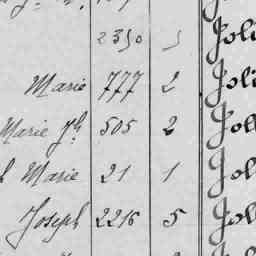 2350 5 Joli
Marie 777 2 Joli
Marie Jh 505 2 Joll
Marie 21 1 Joll
Joseph 2216 5 Joll